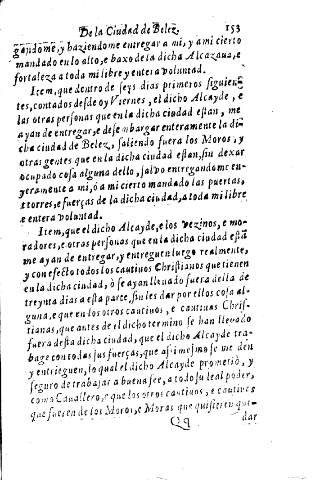 De la Ciudad de Belez. 153
gandome, y haziendome entregar a mi, y a mi cierto
mandado en lo alto, e baxo de la dicha Alcazaua, e
fortaleza a toda mi libre y entera voluntad.
Item, que dentro de seys dias primeros siguien-
tes, contados desde oy Viernes, el dicho Alcayde, e
las otras personas que en la dicha ciudad estan, me
ayan de entregar, e desembargar enteramente la di-
cha ciudad de Belez, saliendo fuera los Moros, y
otras gentes que en la dicha ciudad estan, sin dexar
ocupado cosa alguna dello, saluo entregandome en-
teramente a mi, ò a mi cierto mandado las puertas,
e torres, e fuerças de la dicha ciudad, a toda mi libre
e entera voluntad.
Item, que el dicho Alcayde, e los vezinos, e mo-
radores, e otras personas que en la dicha ciudad està
me ayan de entregar, y entreguen luego realmente,
y con efecto todos los cautiuos Christianos que tienen
en la dicha ciudad, ò se ayan lleuado fuera della de
treynta dias a esta parte, sin les dar por ellos cosa al-
guna, e que en los otros cautiuos, e cautiuas Chris-
tianas, que antes del dicho termino se han lleuado
fuera desta dicha ciudad, que el dicho Alcayde tra-
bage con todas sus fuerças, que assi mesmo se me den
y entrieguen, lo qual el dicho Alcayde prometiò, y
seguro de trabajar a buena fee, a todo su leal poder,
como Cauallero, e que los otros cautiuos, e cautiuas
que fuesen de los Moros, e Moras que quisieren que-
Qq dar